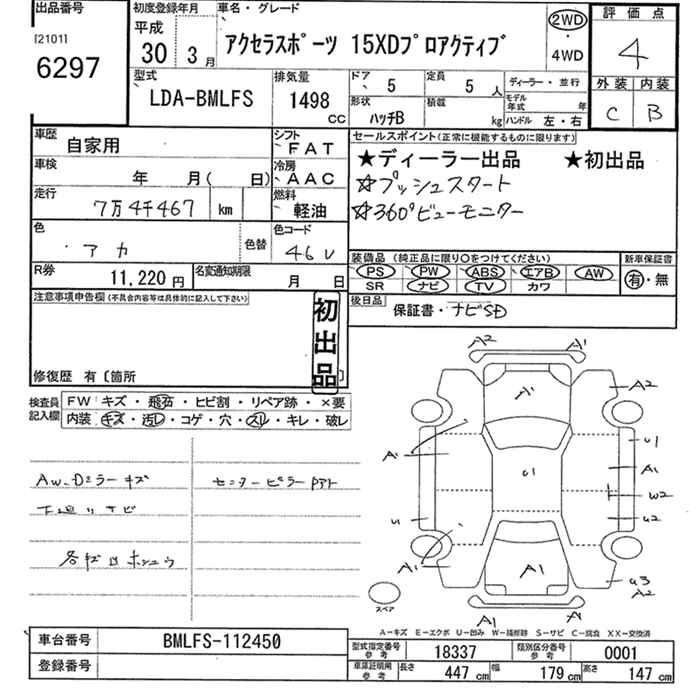 出品番号 初度登録年月 車名・グレード 評価点
[2101] 平成 2WD
6297 30年 3月 アクセラスポーツ 15XDプロアクティブ 4WD 4
型式 排気量 ドア 5 定員 5人 ディーラー・並行 外装 内装
LDA-BMLFS 1498cc 形状 ハッチB 積載 kg モデル年式 年 C B
ハンドル 左・右
車歴 自家用 シフト FAT セールスポイント(正常に機能するものに限ります)
車検 年 月( 日) 冷房 AAC ★ディーラー出品 ★初出品
走行 7万4千467 km 燃料 軽油 ☆プッシュスタート
☆360°ビューモニター
色 ・アカ 色替 色コード 46V
装備品 (純正品に限り○をつけてください) 新車保証書
R券 11,220円 名変通知期限 月 日 PS PW ABS エアB AW 有・無
SR ナビ TV カワ
注意事項申告欄(不具合内容等は具体的に記入して下さい) 初出品 後日品 保証書・ナビSD
修復歴 有〔箇所
検査員記入欄 FW キズ・飛石・ヒビ割・リペア跡・×要
内装 キズ・汚レ・コゲ・穴・スレ・キレ・破レ
A2 A1
A1 A2
AW、Dミラーキズ センターピラーPアト
下廻りサビ
A1 U1 U1 A1 W2
U U2
A1 A1 U3 A2
スペア
A1 A1
A-キズ E-エクボ U-凹み W-補修跡 S-サビ C-腐食 XX-交換済
車台番号 BMLFS-112450 型式指定番号 参考 18337 類別区分番号 参考 0001
登録番号 車庫証明用 参考 長さ 447cm 幅 179cm 高さ 147cm